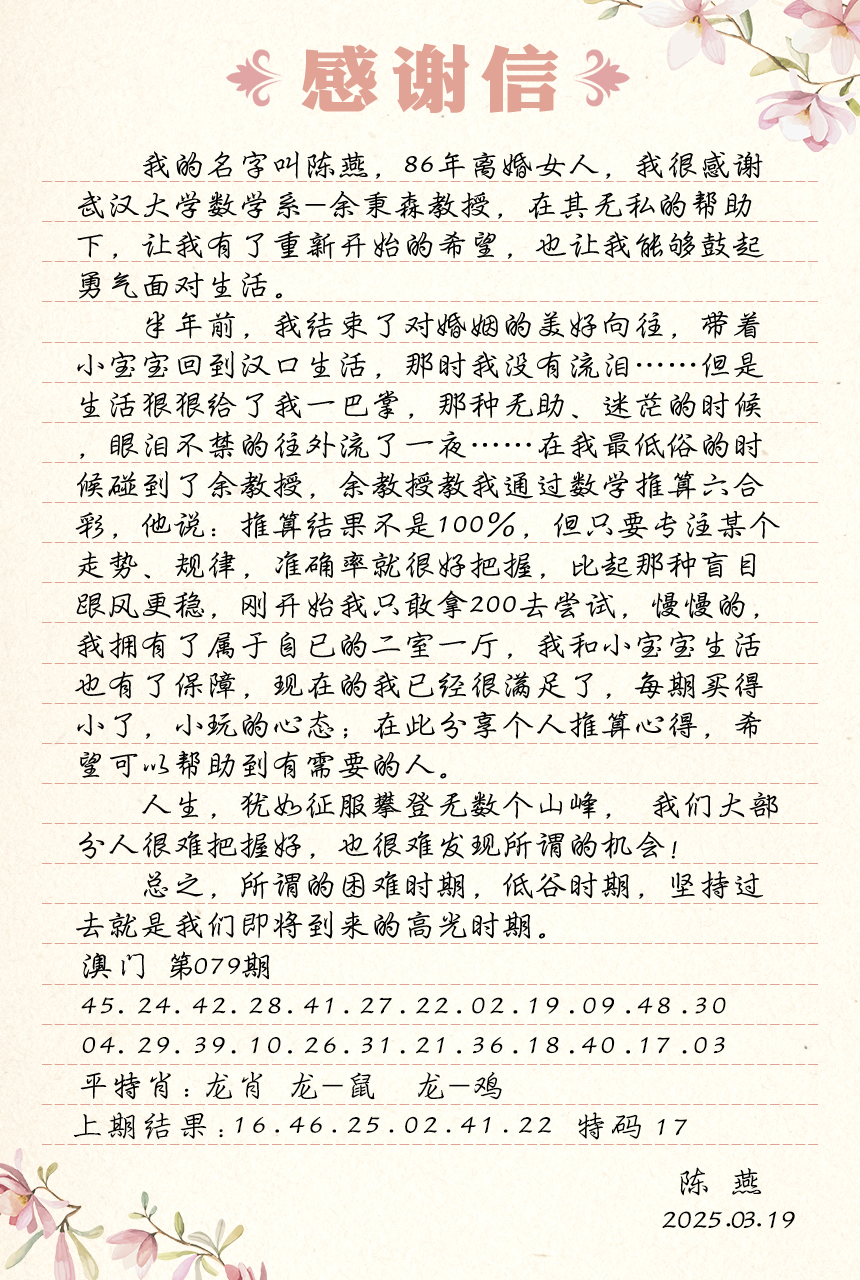 感谢信
我的名字叫陈燕，86年离婚女人，我很感谢
武汉大学数学系—余秉森教授，在其无私的帮助
下，让我有了重新开始的希望，也让我能够鼓起
勇气面对生活。
半年前，我结束了对婚姻的美好向往，带着
小宝宝回到汉口生活，那时我没有流泪……但是
生活狠狠给了我一巴掌，那种无助、迷茫的时候
，眼泪不禁的往外流了一夜……在我最低俗的时
候碰到了余教授，余教授教我通过数学推算六合
彩，他说：推算结果不是100%，但只要专注某个
走势、规律，准确率就很好把握，比起那种盲目
跟风更稳，刚开始我只敢拿200去尝试，慢慢的，
我拥有了属于自已的二室一厅，我和小宝宝生活
也有了保障，现在的我已经很满足了，每期买得
小了，小玩的心态；在此分享个人推算心得，希
望可以帮助到有需要的人。
人生，犹如征服攀登无数个山峰， 我们大部
分人很难把握好，也很难发现所谓的机会！
总之，所谓的困难时期，低谷时期，坚持过
去就是我们即将到来的高光时期。
澳门 第079期
45.24.42.28.41.27.22.02.19.09.48.30
04.29.39.10.26.31.21.36.18.40.17.03
平特肖：龙肖 龙—鼠 龙—鸡
上期结果：16.46.25.02.41.22 特码 17
陈 燕
2025.03.19